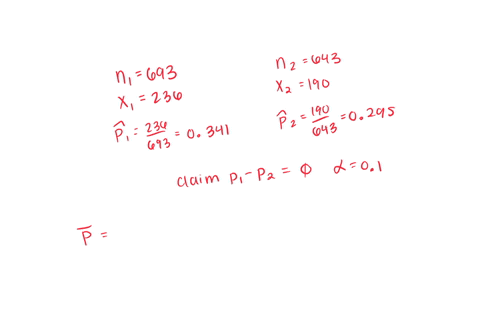 n₁ = 693
x₁ = 236
p̂₁ = 236/693 = 0.341
n₂ = 643
x₂ = 190
p̂₂ = 190/643 = 0.295
claim p₁ - p₂ = 0 α = 0.1
p̄ =